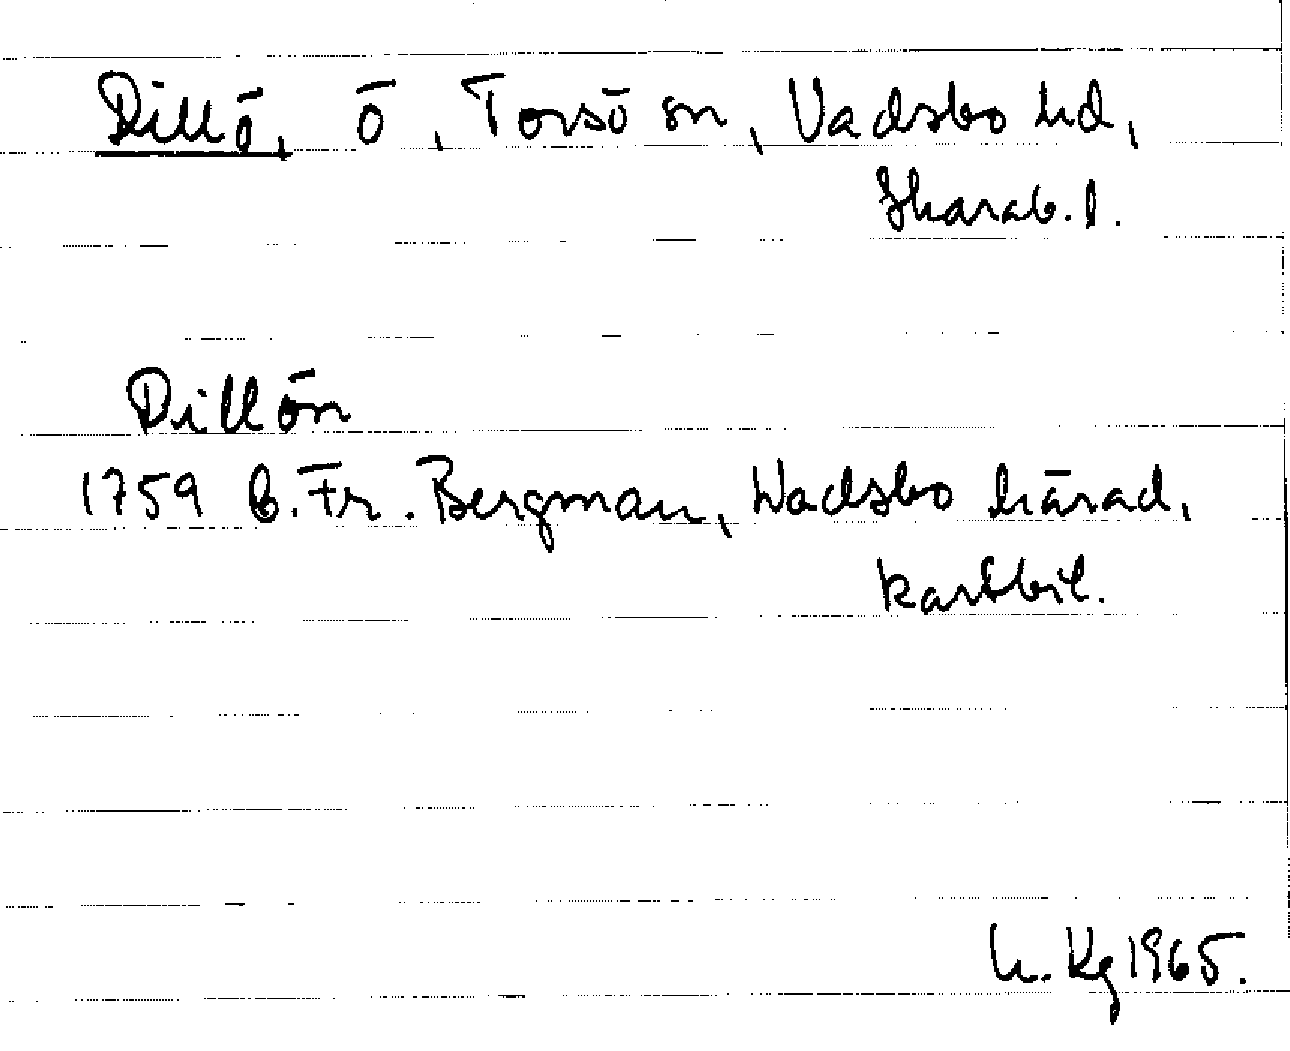 Dillö, ö, Torsö sn, Vadsbo hd,
Skarab. l.
Dillön
1759 C. Fr. Bergman, Wadsbo härad,
kartbil.
h. Kg 1965.